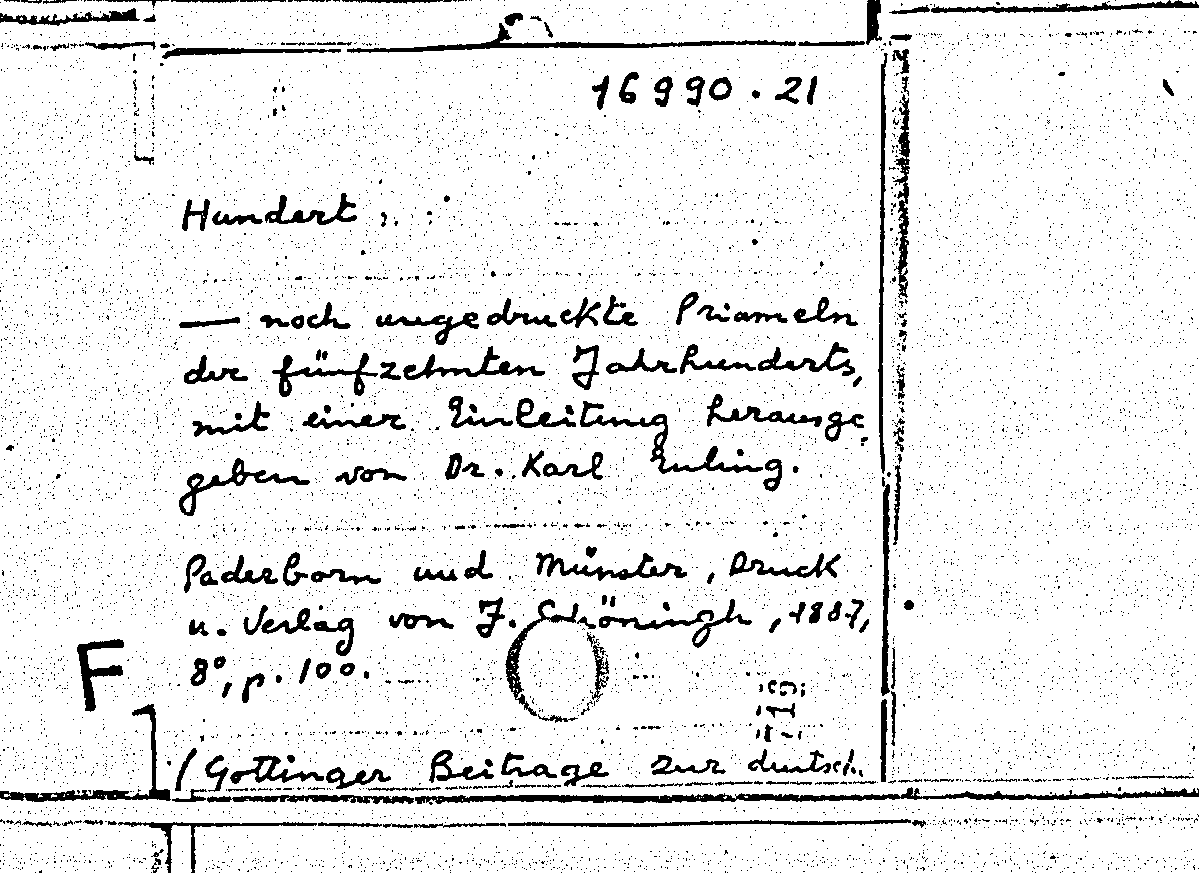 16990.21
Hundert
— noch ungedruckte Priameln
der fünfzehnten Jahrhunderts,
mit einer Einleitung herausge
geben von Dr. Karl Euling.
Paderborn und Münster, Druck
u. Verlag von J. Schöningh, 1887,
8°, p. 100.
F
(Gottinger Beitrage zur deutsch.